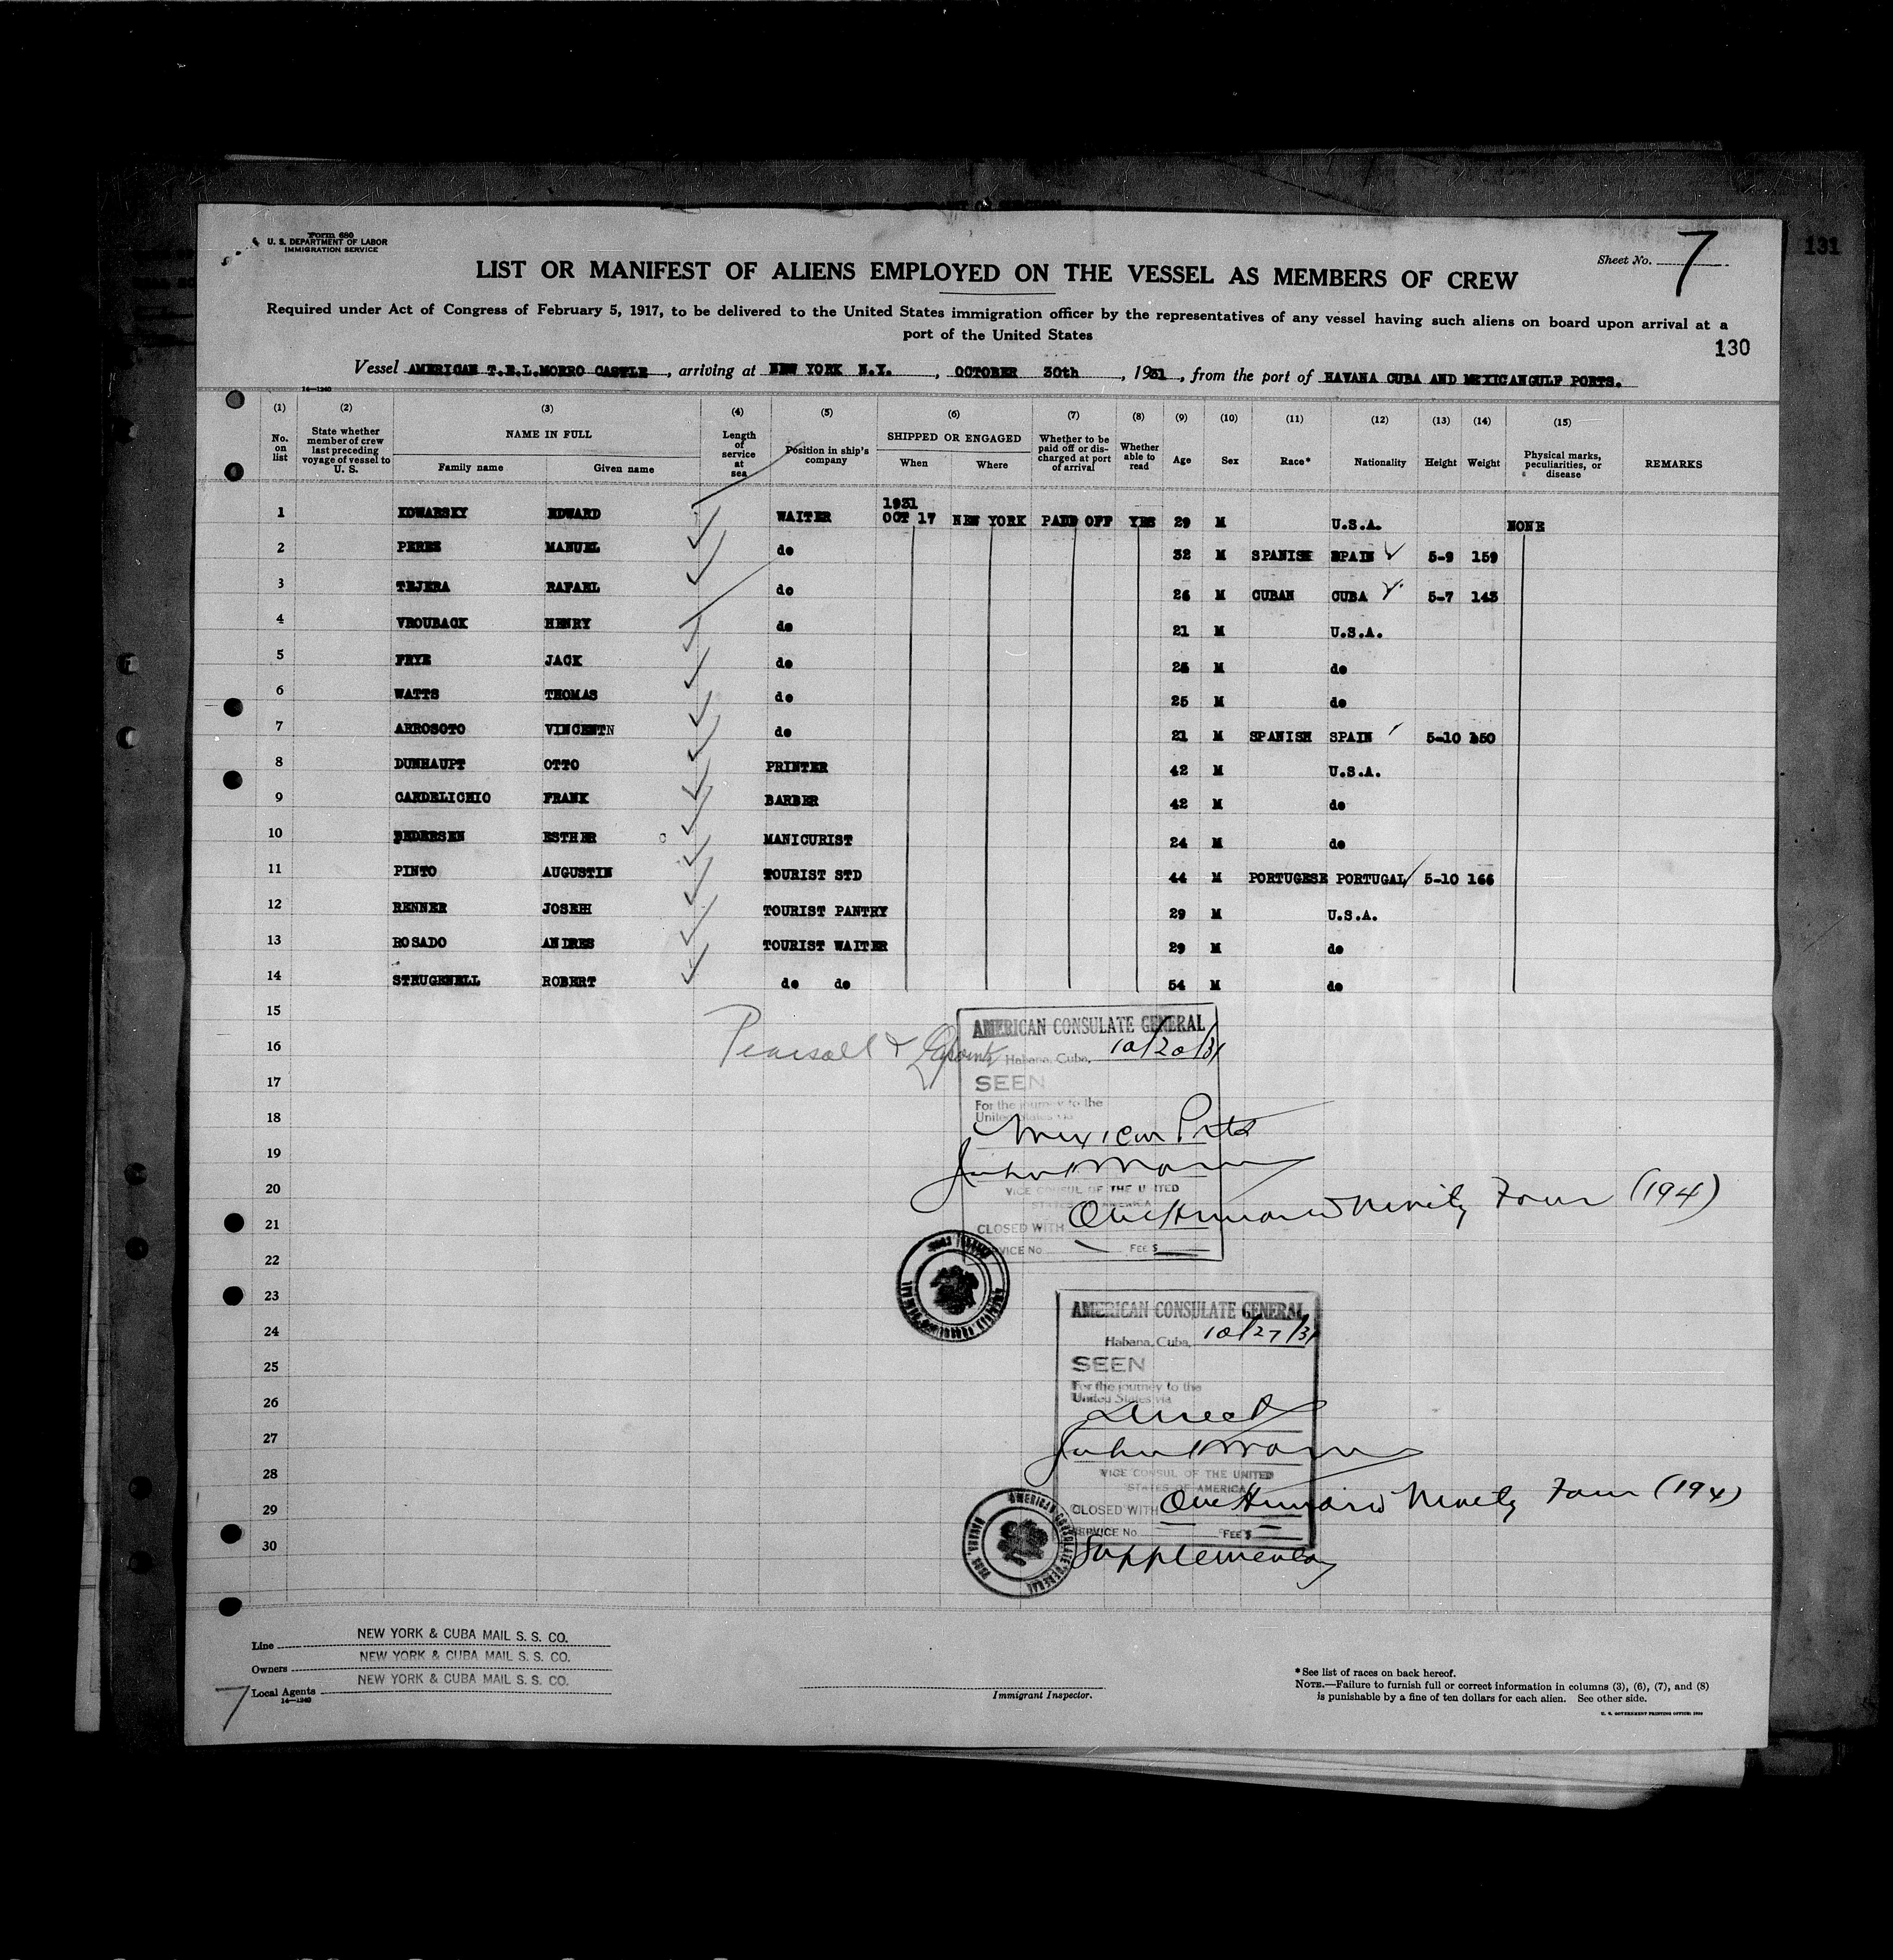 131
Form 680
U. S. DEPARTMENT OF LABOR
IMMIGRATION SERVICE
Sheet No. 7
LIST OR MANIFEST OF ALIENS EMPLOYED ON THE VESSEL AS MEMBERS OF CREW
Required under Act of Congress of February 5, 1917, to be delivered to the United States immigration officer by the representatives of any vessel having such aliens on board upon arrival at a
port of the United States
130
Vessel AMERICAN T.E.L.MORRO CASTLE, arriving at NEW YORK N.Y., OCTOBER 30th, 1931, from the port of HAVANA CUBA AND MEXICANGULF PORTS.
14-1240
(1) (2) (3) (4) (5) (6) (7) (8) (9) (10) (11) (12) (13) (14) (15)
No. on list State whether member of crew last preceding voyage of vessel to U. S. NAME IN FULL Family name Given name Length of service at sea Position in ship's company SHIPPED OR ENGAGED When Where Whether to be paid off or discharged at port of arrival Whether able to read Age Sex Race* Nationality Height Weight Physical marks, peculiarities, or disease REMARKS
1 KOWARSKY EDWARD WAITER 1931 OCT 17 NEW YORK PAID OFF YES 29 M U.S.A. NONE
2 PEREZ MANUEL do 32 M SPANISH SPAIN 5-9 159
3 TEJERA RAFAEL do 26 M CUBAN CUBA 5-7 143
4 VROUBACK HENRY do 21 M U.S.A.
5 FRYE JACK do 25 M do
6 WATTS THOMAS do 25 M do
7 ARROSOTO VINCENTN do 21 M SPANISH SPAIN 5-10 150
8 DUNHAUPT OTTO PRINTER 42 M U.S.A.
9 CARDELICHIO FRANK BARBER 42 M do
10 PEDERSEN ESTHER C MANICURIST 24 M do
11 PINTO AUGUSTIN TOURIST STD 44 M PORTUGESE PORTUGAL 5-10 166
12 RENNER JOSEPH TOURIST PANTRY 29 M U.S.A.
13 ROSADO ANDRES TOURIST WAITER 29 M do
14 STRUGENELL ROBERT do do 54 M do
15
16 Pearsall &
17
18
19
20
21
22
23
24
25
26
27
28
29
30
AMERICAN CONSULATE GENERAL
Habana, Cuba, 10/20/31
SEEN
For the journey to the
United States via
Mexican Ports
VICE CONSUL OF THE UNITED
STATES OF AMERICA
CLOSED WITH One Hundred Ninety Four (194)
SERVICE No. FEE $
AMERICAN CONSULATE GENERAL
Habana, Cuba, 10/27/31
SEEN
For the journey to the
United States via
Direct
VICE CONSUL OF THE UNITED
STATES OF AMERICA
CLOSED WITH One Hundred Ninety Four (194)
SERVICE No. FEE $
AMERICAN CONSULATE GENERAL HABANA, CUBA
Supplementary
Line NEW YORK & CUBA MAIL S. S. CO.
Owners NEW YORK & CUBA MAIL S. S. CO.
Local Agents NEW YORK & CUBA MAIL S. S. CO.
14-1240
7
Immigrant Inspector.
* See list of races on back hereof.
NOTE.—Failure to furnish full or correct information in columns (3), (6), (7), and (8)
is punishable by a fine of ten dollars for each alien. See other side.
U. S. GOVERNMENT PRINTING OFFICE: 1930